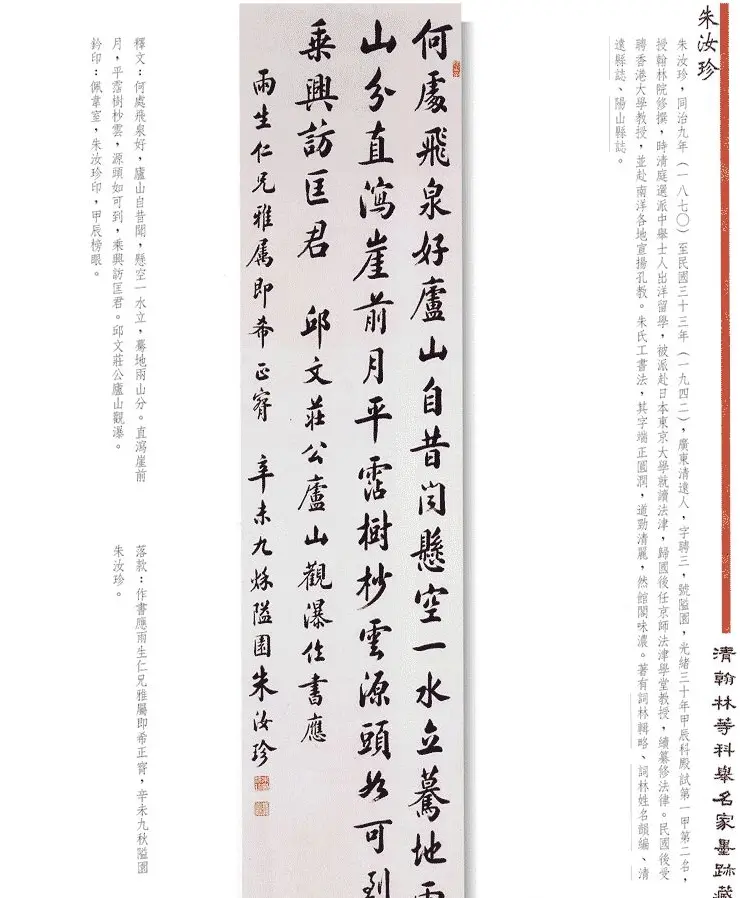 朱汝珍
朱汝珍，同治九年（一八七〇）至民國三十三年（一九四二），廣東清遠人，字聘三，號隘園，光緒三十年甲辰科殿試第一甲第二名，
授翰林院修撰，時清庭選派中舉士人出洋留學，被派赴日本東京大學就讀法律，歸國後任京師法律學堂教授，續纂修法律。民國後受
聘香港大學教授，並赴南洋各地宣揚孔教。朱氏工書法，其字端正圓潤，遒勁清麗，然館閣味濃。著有詞林輯略、詞林姓名韻編、清
遠縣誌、陽山縣誌。
清翰林等科舉名家墨跡藏
何處飛泉好廬山自昔闻懸空一水立驀地兩
山分直瀉崖前月平霑樹杪雲源頭如可到
乘興訪匡君 邱文莊公廬山觀瀑作書應
雨生仁兄雅属即希 正窜 辛未九秌隘園朱汝珍
釋文：何處飛泉好，廬山自昔聞，懸空一水立，驀地兩山分。直瀉崖前
月，平霑樹杪雲，源頭如可到，乘興訪匡君。邱文莊公廬山觀瀑。
鈐印：佩韋室，朱汝珍印，甲辰榜眼。
落款：作書應雨生仁兄雅屬即希正甯，辛未九秋隘園
朱汝珍。